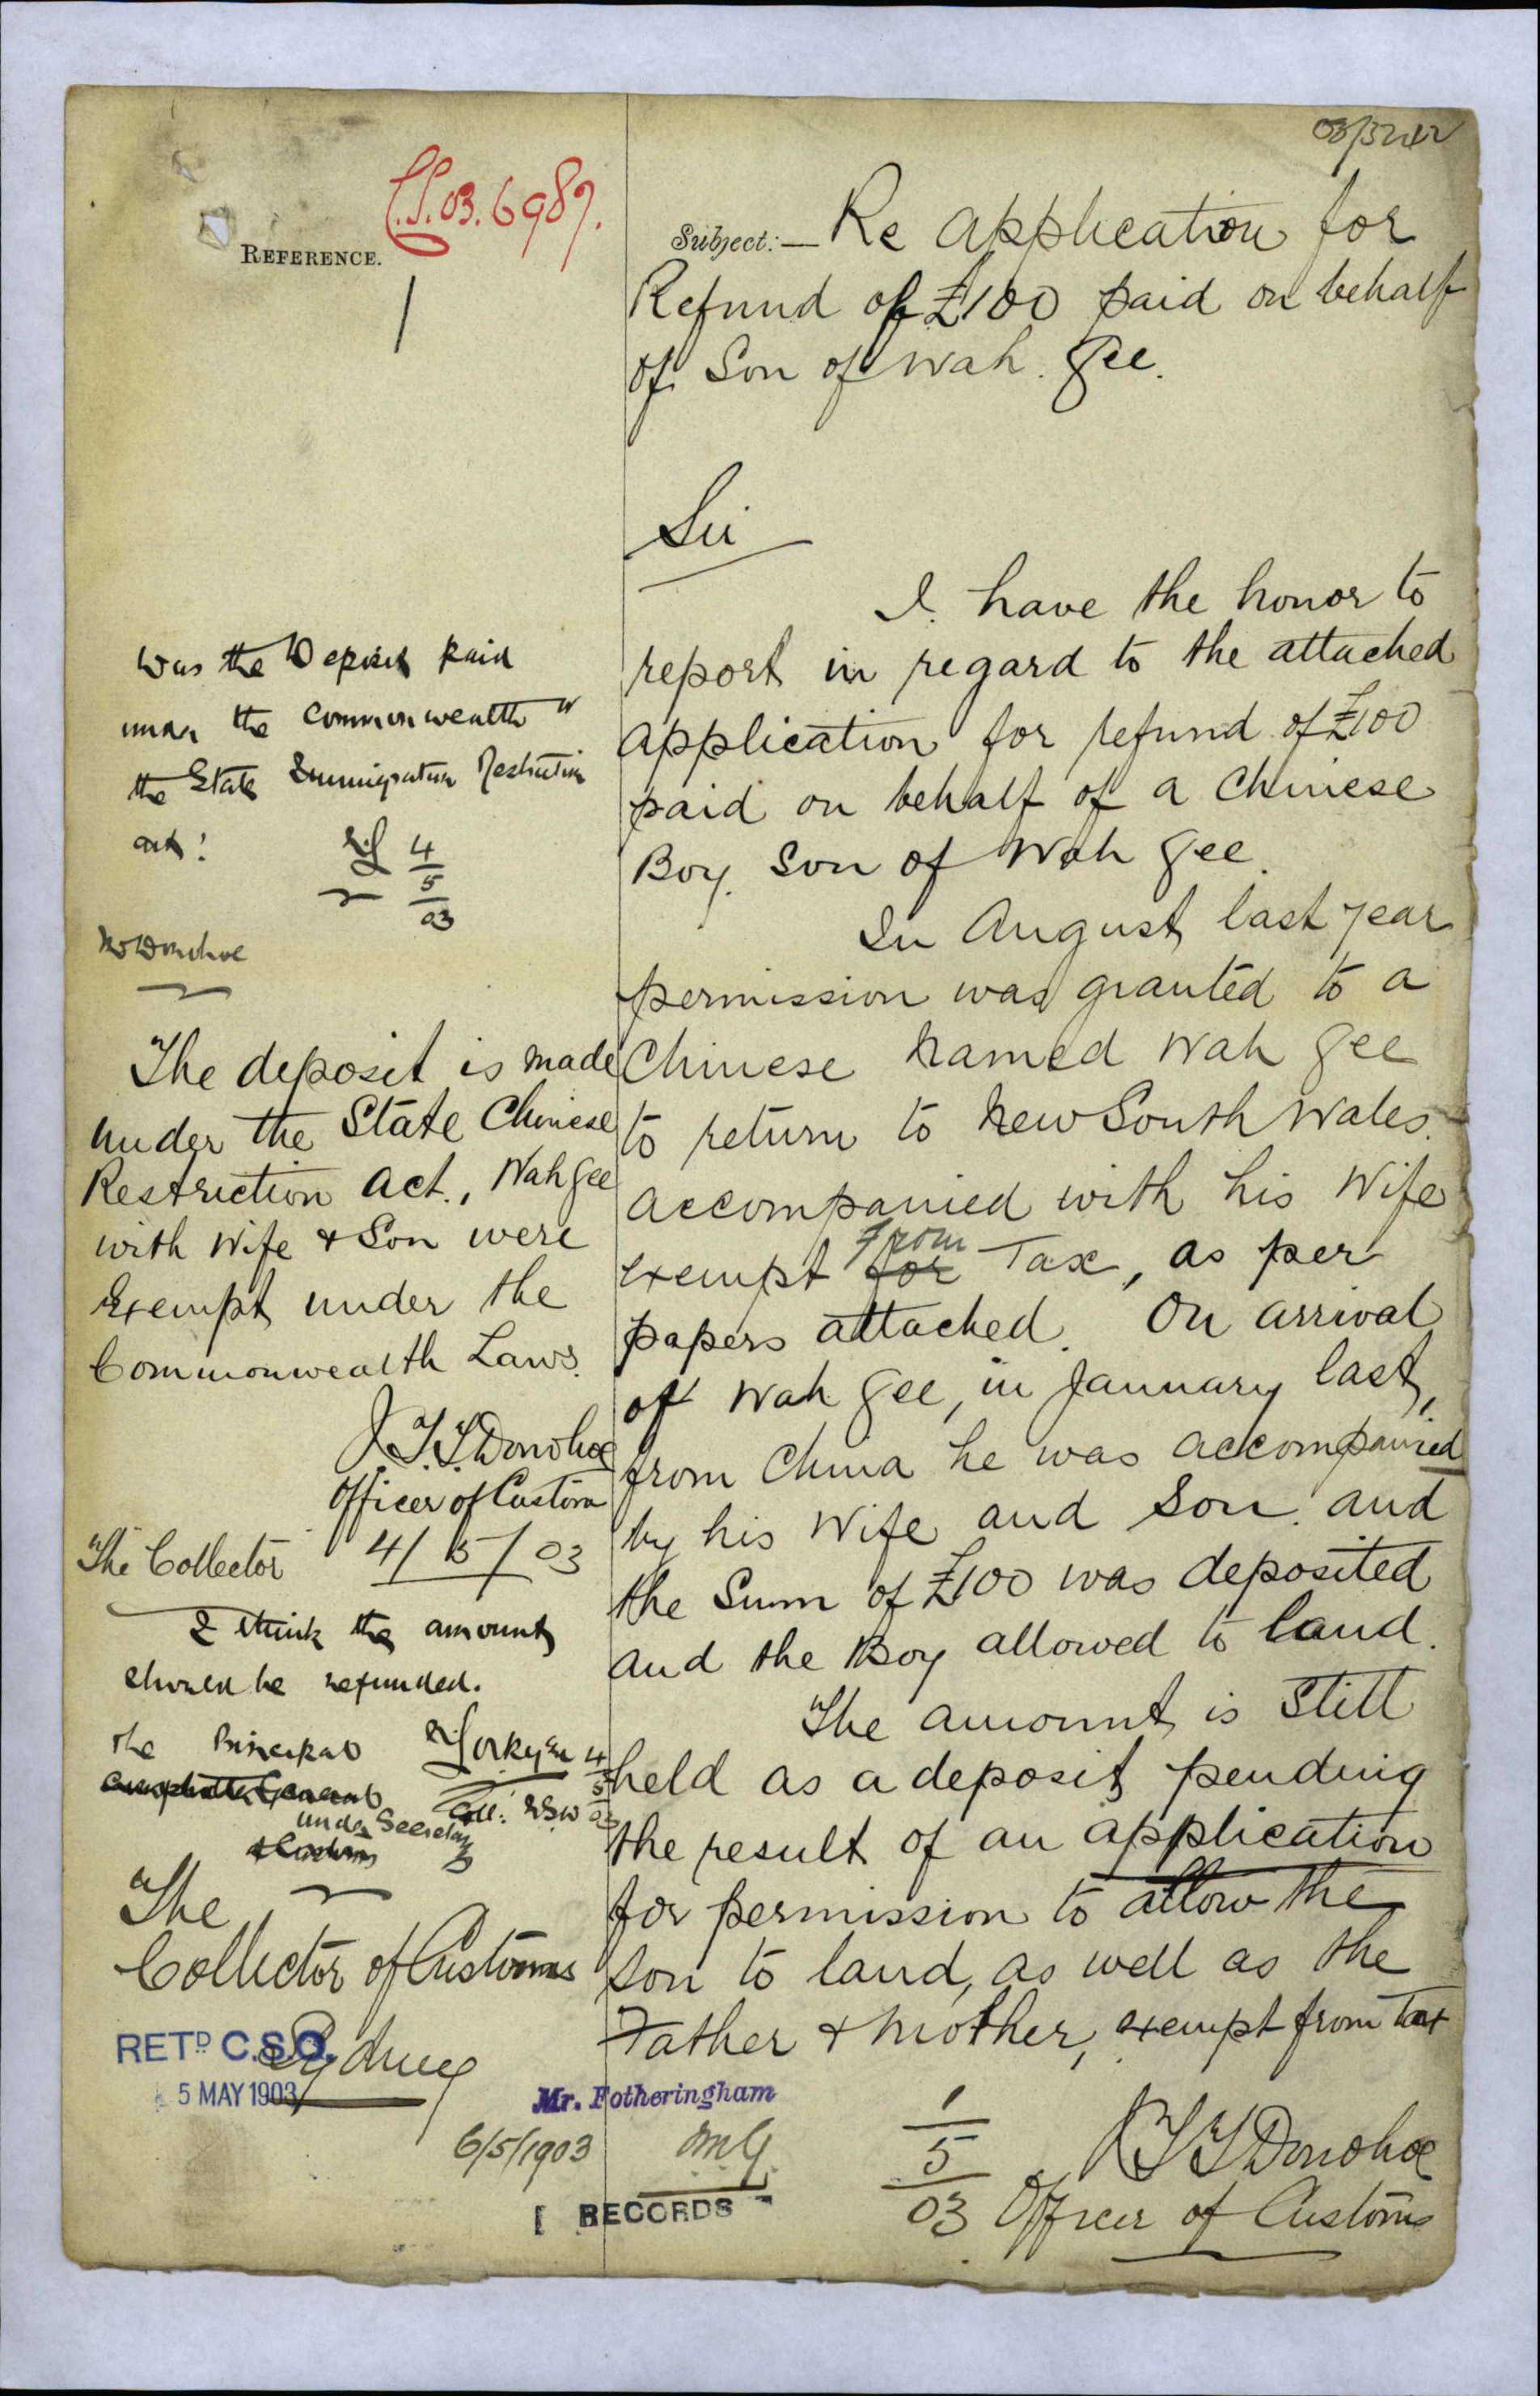 C.S. 03. 6987.
REFERENCE.
Subject:— Re Application for
Refund of £100 paid on behalf
of Son of Wah Gee.
Sir
I have the honor to
report in regard to the attached
application for refund of £100
paid on behalf of a Chinese
Boy. Son of Wah Gee.
In August last year
permission was granted to a
Chinese named Wah Gee
to return to New South Wales.
accompanied with his Wife
exempt for from Tax, as per
papers attached. On arrival
of Wah Gee, in January last,
from China he was accompanied
by his Wife and Son. and
the Sum of £100 was deposited
and the Boy allowed to land.
The amount is still
held as a deposit pending
the result of an application
for permission to allow the
son to land, as well as the
Father & Mother, exempt from Tax
1
5
03
Donohoe
Officer of Customs
Was the Deposit paid
under the Commonwealth or
the State Immigration Restriction
act?
4
5
03
Mr Donohoe
The deposit is made
under the State Chinese
Restriction Act., Wah Gee
with Wife & Son were
Exempt under the
Commonwealth Laws.
J.T.T. Donohoe
Officer of Customs
The Collector 4/5/03
I think the amount
should be refunded.
The Principal
Under Secretary
Coll. NSW
4
5
03
The
Collector of Customs
Sydney
RETD. C.S.O.
5 MAY 1903
Mr. Fotheringham
6/5/1903
RECORDS